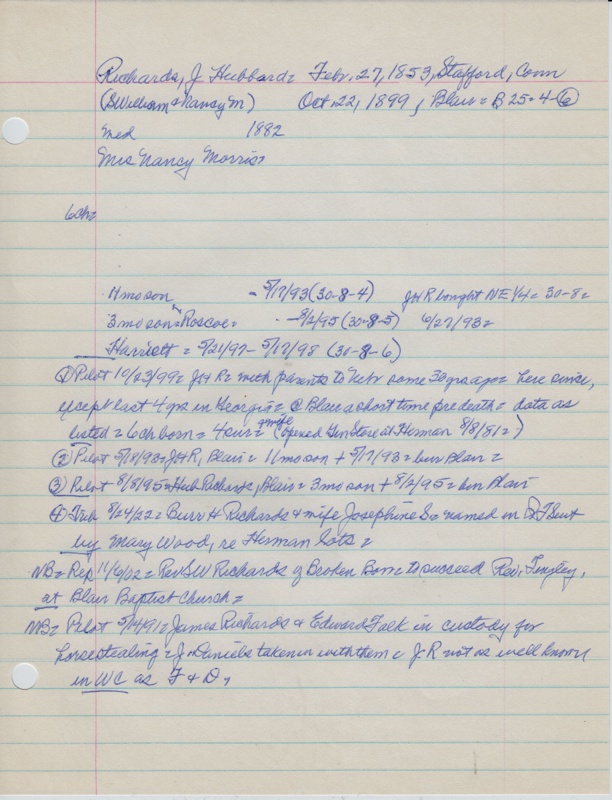 Richards, J. Hubbard = Feb. 27, 1853, Stafford, Conn
(S William & Nancy M) Oct. 22, 1899, Blair = B 25-4-⑥
Med 1882
Mrs Nancy Morris,
6 ch =
11 mo son - 5/17/93 (30-8-4) JHR bought NE 1/4 = 30-8 =
3 mo son = Roscoe = - 8/2/95 (30-8-5) 6/27/93 =
Harriett = 5/21/97 - 5/17/98 (30-8-6)
① Pilot 10/23/99 = JHR = with parents to Nebr some 30 yrs ago = here since,
except last 4 yrs in Georgia = @ Blair a short time pre death = data as
listed = 6 ch born = 4 surv = & wife (opened Gen Store at Herman 8/8/81 =)
② Pilot 5/18/93 = JHR, Blair = 11 mo son + 5/17/93 = bur Blair =
③ Pilot 8/8/95 = Hub Richards, Blair = 3 mo son + 8/2/95 = bur Blair
④ Trib 8/24/22 = Burr H Richards & wife Josephine S = named in QT Suit
by Mary Wood, re Herman lots =
NB = Rep 11/6/02 = Rev SW Richards of Broken Bow to succeed Rev. Tingley,
at Blair Baptist Church =
NB = Pilot 5/14/91 = James Richards & Edward Falk in custody for
horsestealing = J. Daniels taken in with them = J R not as well known
in WC as F & D,